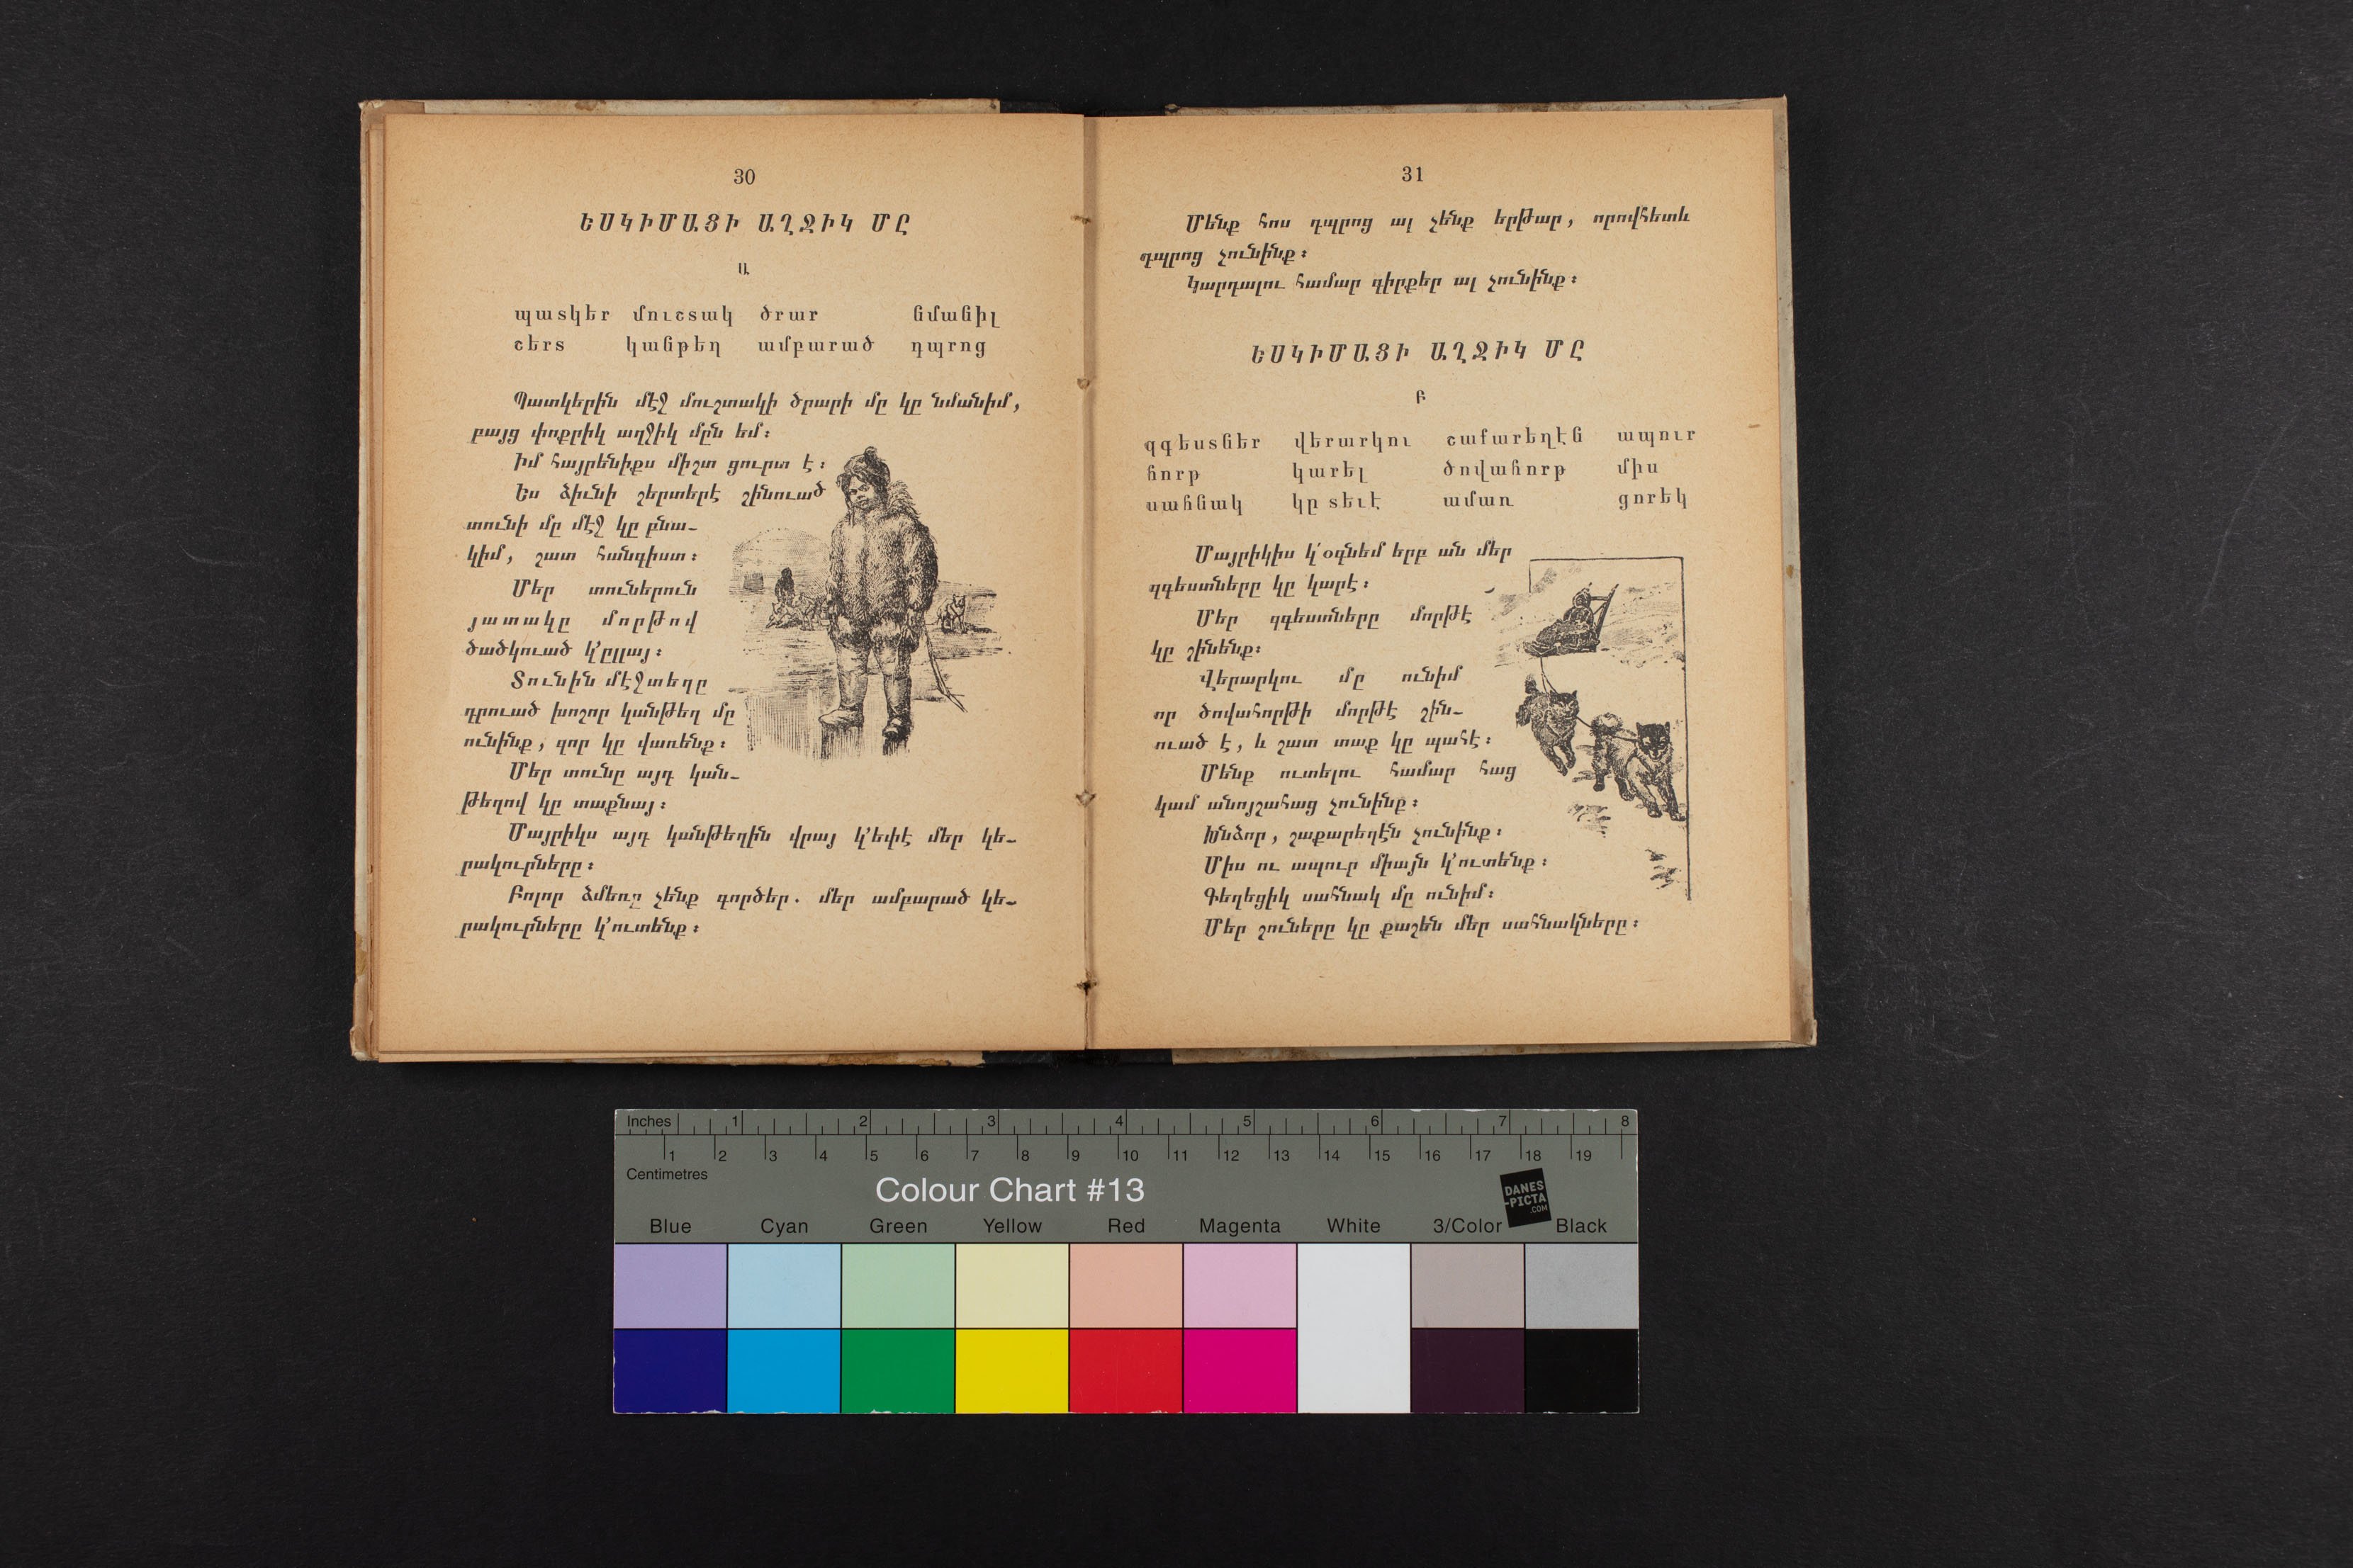 30
ԵՍԿԻՄԱՑԻ ԱՂՋԻԿ ՄԸ
Ա
պատկեր մուշտակ ծրար նմանիլ
շերտ կանթեղ ամբարած դպրոց
Պատկերին մէջ մուշտակի ծրարի մը կը նմանիմ,
բայց փոքրիկ աղջիկ մըն եմ։
Իմ հայրենիքս միշտ ցուրտ է։
Ես ձիւնի շերտերէ շինուած
տունի մը մէջ կը բնա-
կիմ, շատ հանգիստ։
Մեր տուներուն
յատակը մորթով
ծածկուած կ՚ըլլայ։
Տունին մէջտեղը
դրուած խոշոր կանթեղ մը
ունինք, զոր կը վառենք։
Մեր տունը այդ կան-
թեղով կը տաքնայ։
Մայրիկս այդ կանթեղին վրայ կ՚եփէ մեր կե-
րակուրները։
Բոլոր ձմեռը չենք գործեր. մեր ամբարած կե-
րակուրները կ՚ուտենք։
31
Մենք հոս դպրոց ալ չենք երթար, որովհետև
դպրոց չունինք։
Կարդալու համար գիրքեր ալ չունինք։
ԵՍԿԻՄԱՑԻ ԱՂՋԻԿ ՄԸ
Բ
զգեստներ վերարկու շաքարեղէն ապուր
հորթ կարել ծովահորթ միս
սահնակ կը տեւէ ամառ ցորեկ
Մայրիկիս կ՚օգնեմ երբ ան մեր
զգեստները կը կարէ։
Մեր զգեստները մորթէ
կը շինենք։
Վերարկու մը ունիմ
որ ծովահորթի մորթէ շին-
ուած է, և շատ տաք կը պահէ։
Մենք ուտելու համար հաց
կամ անոյշահաց չունինք։
Խնձոր, շաքարեղէն չունինք։
Միս ու ապուր միայն կ՚ուտենք։
Գեղեցիկ սահնակ մը ունիմ։
Մեր շուները կը քաշեն մեր սահնակները։
Inches 1 2 3 4 5 6 7 8
1 2 3 4 5 6 7 8 9 10 11 12 13 14 15 16 17 18 19
Centimetres
Colour Chart #13
DANES
-PICTA
.COM
Blue Cyan Green Yellow Red Magenta White 3/Color Black